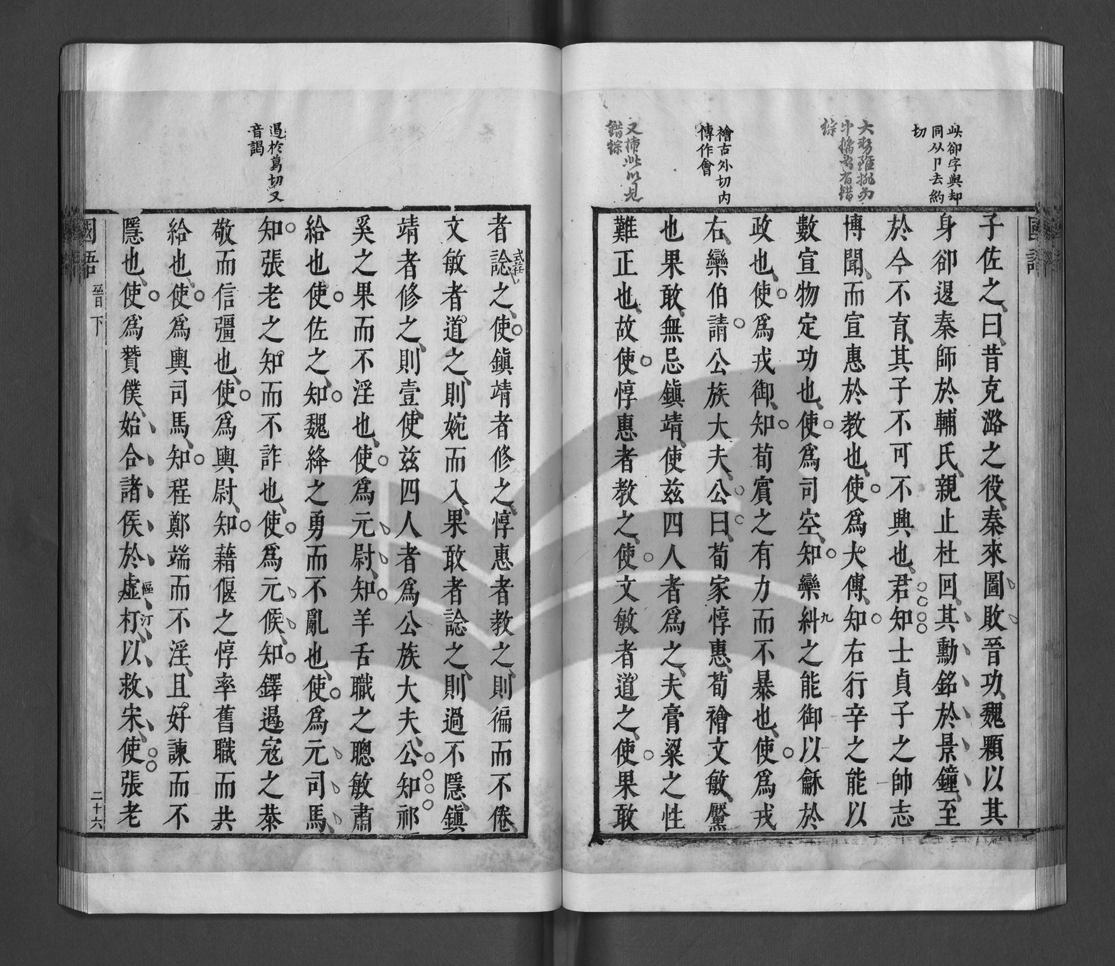 國語
子佐之曰昔克潞之役秦來圖敗晉功魏顆以其
身卻退秦師於輔氏親止杜回其勳銘於景鐘至
於今不育其子不可不興也君知士貞子之帥志
博聞而宣惠於教也使爲大傅知右行辛之能以
數宣物定功也使爲司空知欒糾之能御以龢於
政也使爲戎御知荀賔之有力而不暴也使爲戎
右欒伯請公族大夫公曰荀家惇惠荀襘文敏黶
也果敢無忌鎮靖使兹四人者爲之夫膏粱之性
難正也故使惇惠者教之使文敏者道之使果敢
此卻字與却
同从卩去約
切
襘古外切內
傳作會
者諗之使鎮靖者修之惇惠者教之則徧而不倦
文敏者道之則婉而入果敢者諗之則過不隱鎮
靖者修之則壹使兹四人者爲公族大夫公知祁
奚之果而不淫也使爲元尉知羊舌職之聰敏肅
給也使佐之知魏絳之勇而不亂也使爲元司馬
知張老之知而不詐也使爲元候知鐸遏寇之恭
敬而信彊也使爲輿尉知藉偃之惇率舊職而共
給也使爲輿司馬知程鄭端而不淫且好諫而不
隱也使爲贊僕始合諸侯於虛朾以救宋使張老
遏於葛切又
音謁
國語
晉下
二十六